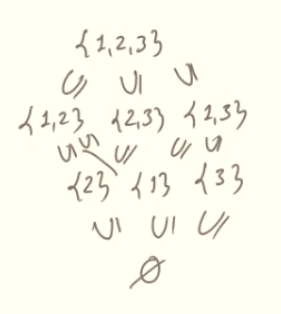 {1,2,3}
∪| ∪| ∪|
{1,2} {2,3} {1,3}
∪| ∪| ∪| ∪| ∪|
{2} {1} {3}
∪| ∪| ∪|
∅